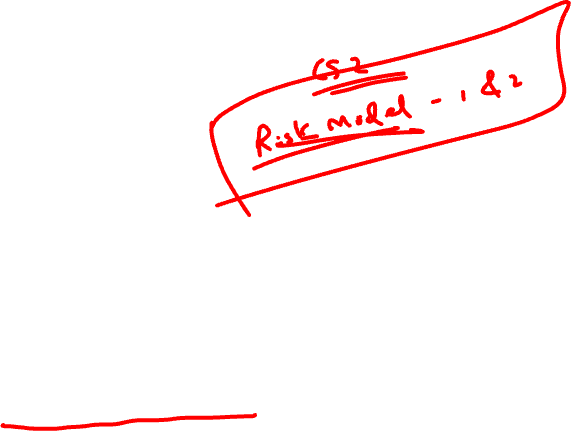 CS2
Risk model - 1 & 2